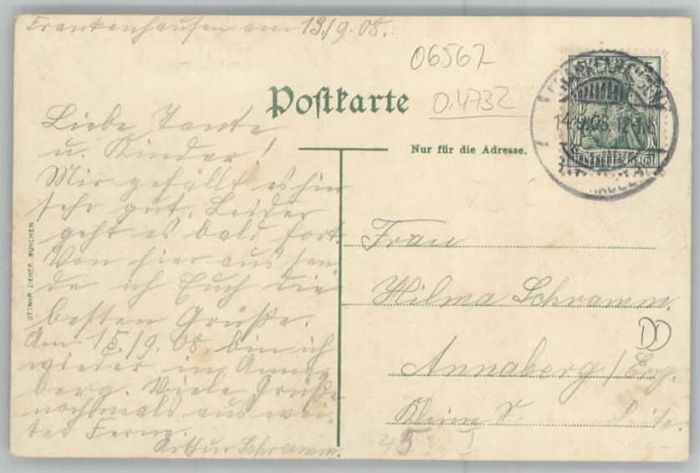 Frankenhausen am 13/9.08.
06567
0.4732
Postkarte
Nur für die Adresse.
Liebe Tante
u. Kinder!
Mir gefällt es hier
sehr gut. Leider
geht es bald fort.
Von hier aus sen
de ich Euch die
besten Grüße.
Am 15./9.08 bin ich
wieder in Anna
berg. Viele Grüße
nochmals aus wei
ter Ferne.
Artur Schramm.
OTTMAR ZIEHER, MÜNCHEN
Frau
Hilma Schramm.
DD
Annaberg/Erzg.
Kleine
45